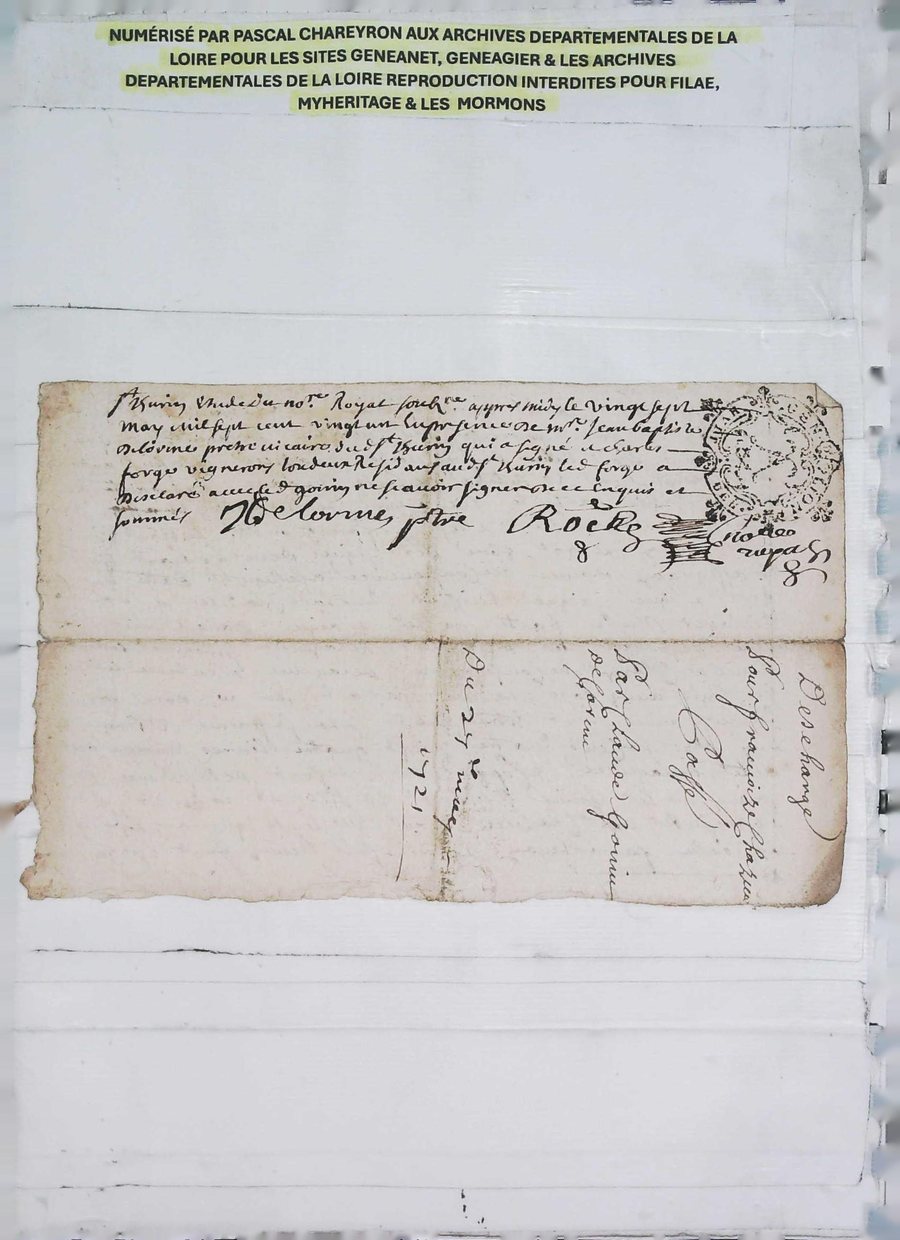 NUMÉRISÉ PAR PASCAL CHAREYRON AUX ARCHIVES DEPARTEMENTALES DE LA
LOIRE POUR LES SITES GENEANET, GENEAGIER & LES ARCHIVES
DEPARTEMENTALES DE LA LOIRE REPRODUCTION INTERDITES POUR FILAE,
MYHERITAGE & LES MORMONS
St Thurin Etude du nore Royal soubne appres midy le vingt sept
may mil sept cent vingt un en presence de mre Jean baptiste
delorme pretre vicaire dud St Thurin qui a signé et
forge vigneron tous deux Residans aud St Thurin led forge a
declaré avec led gonin ne scavoir signer de ce enquis et
sommés Delorme ptre Roche
notre
royal
Descharge
Pour francoize
Par Claude Gonin
Du 27 may
1721